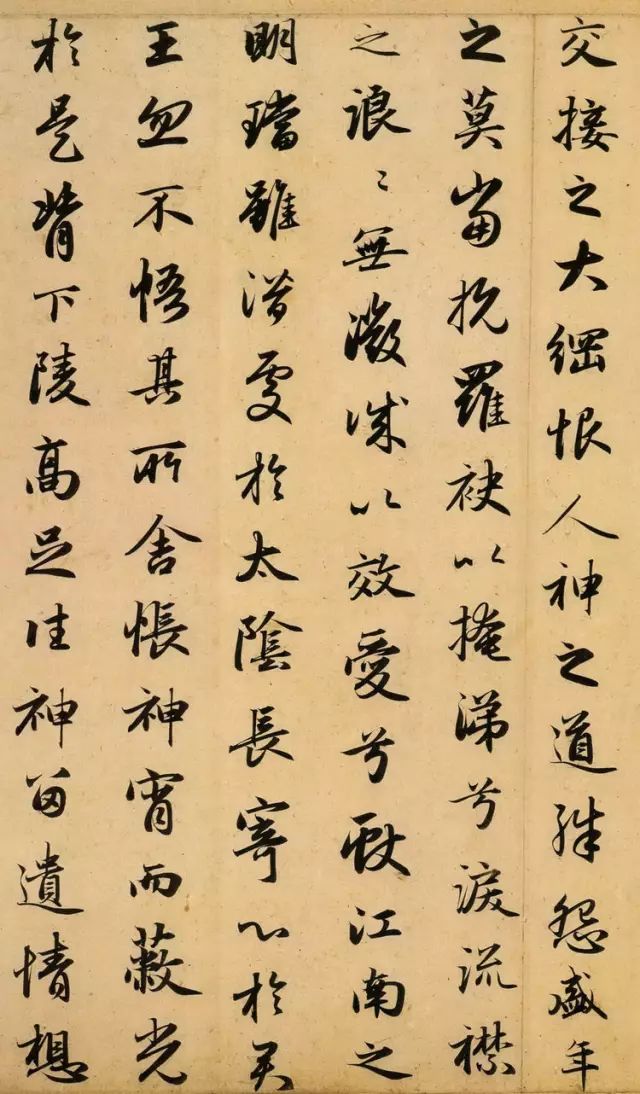 交接之大綱恨人神之道殊怨盛年
之莫當抗羅袂以掩涕兮淚流襟
之浪〻無微誠以效愛兮獻江南之
明璫雖潛處於太陰長寄心於君
王忽不悟其所舍悵神宵而蔽光
於是背下陵高足往神留遺情想